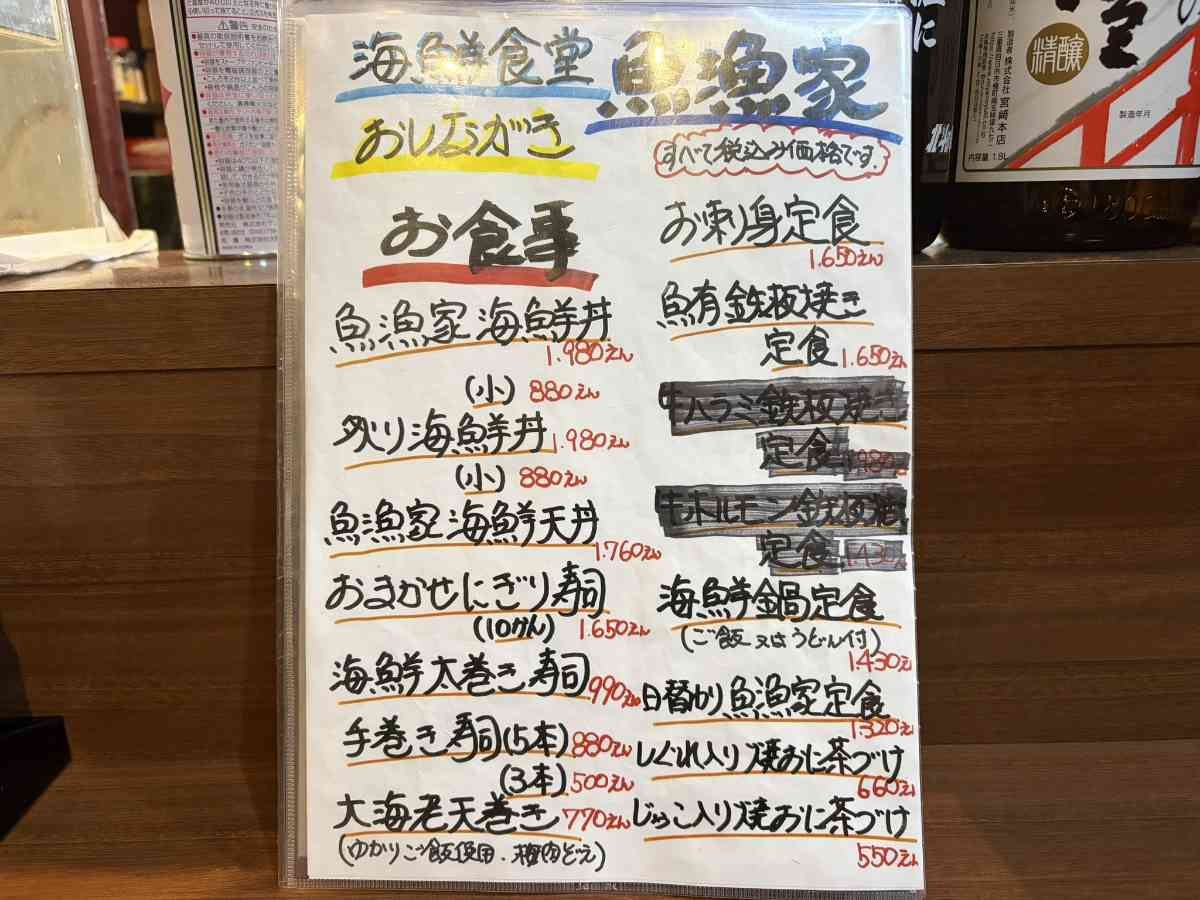 海鮮食堂 魚漁家
おしながき
すべて税込み価格です。
お食事
魚漁家海鮮丼
1.980えん
(小) 880えん
炙り海鮮丼 1.980えん
(小) 880えん
魚漁家海鮮天丼
1.760えん
おまかせにぎり寿司
(10かん) 1.650えん
海鮮太巻き寿司 990えん
手巻き寿司(5本) 880えん
(3本) 500えん
大海老天巻き 770えん
(ゆかりご飯使用・梅肉どえ)
お刺身定食
1.650えん
魚有鉄板焼き
定食 1.650えん
牛ハラミ鉄板焼き
定食
牛ホルモン鉄板焼
定食 1.430
海鮮鍋定食
(ご飯又はうどん付)
1.430え
日替わり魚漁家定食
1.320えん
しぐれ入り焼おに茶づけ
660えん
じゃこ入り焼おに茶づけ
550えん
警告
清醸
製造者 株式会社 宮﨑本店
製造年月
内容量 1.8L